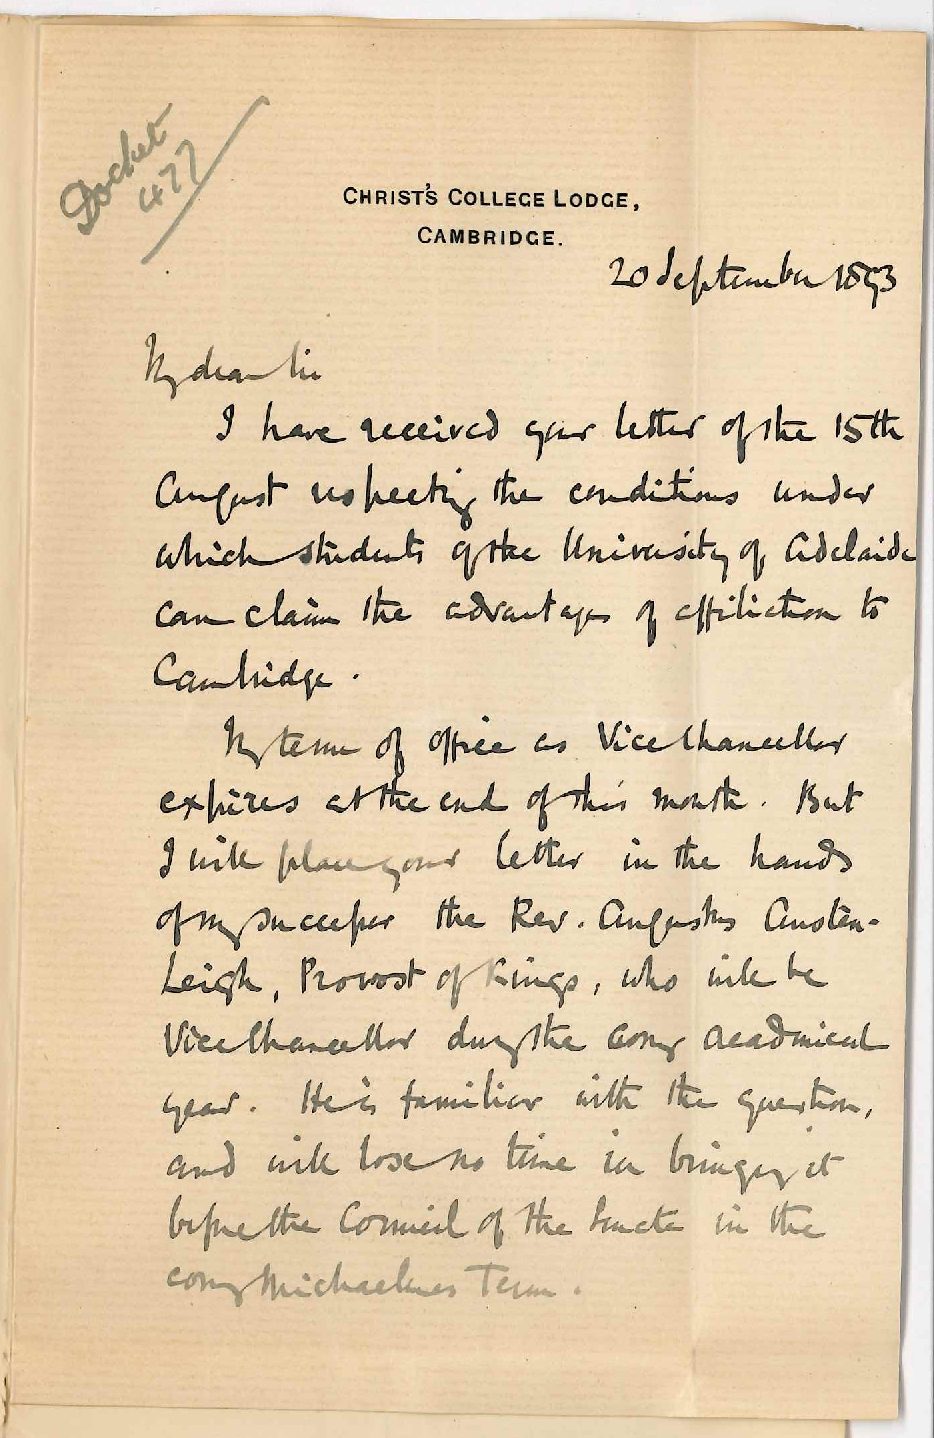 Docket
477
CHRIST'S COLLEGE LODGE,
CAMBRIDGE.
20 September 1893
My dear Sir
I have received your letter of the 15th
August respecting the conditions under
which students of the University of Adelaide
can claim the advantages of affiliation to
Cambridge.
My term of office as Vice Chancellor
expires at the end of this month. But
I will place your letter in the hands
of my successor the Rev. Augustus Austen-
Leigh, Provost of Kings, who will be
Vice Chancellor during the coming academical
year. He is familiar with the question,
and will lose no time in bringing it
before the Council of the Senate in the
coming Michaelmas Term.